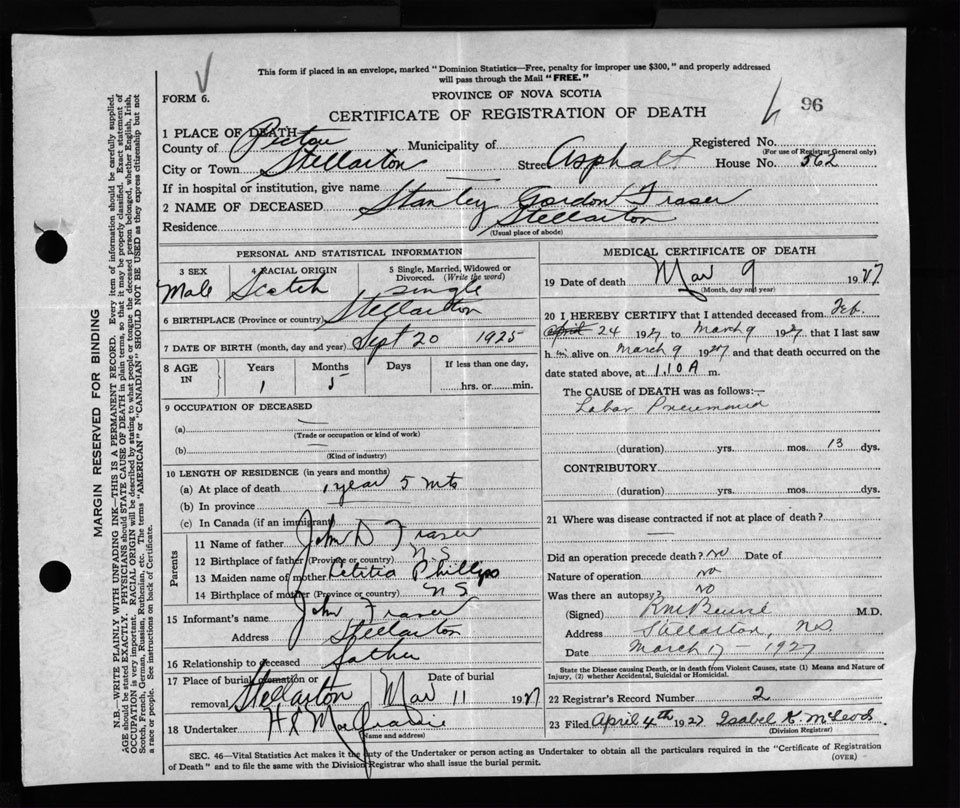 This form if placed in an envelope, marked "Dominion Statistics—Free, penalty for improper use $300," and properly addressed
will pass through the Mail "FREE."
FORM 6.
PROVINCE OF NOVA SCOTIA
96
CERTIFICATE OF REGISTRATION OF DEATH
1 PLACE OF DEATH
County of Pictou Municipality of Registered No.
(For use of Registrar General only)
City or Town Stellarton Street Asphalt House No. 562
If in hospital or institution, give name —
2 NAME OF DECEASED Stanley Gordon Fraser
Residence Stellarton
(Usual place of abode)
PERSONAL AND STATISTICAL INFORMATION
3 SEX 4 RACIAL ORIGIN 5 Single, Married, Widowed or
Divorced. (Write the word)
Male Scotch single
6 BIRTHPLACE (Province or country) Stellarton
7 DATE OF BIRTH (month, day and year) Sept 20 1925
8 AGE IN Years Months Days If less than one day,
1 5 hrs. or min.
9 OCCUPATION OF DECEASED
(a) —
(Trade or occupation or kind of work)
(b) —
(Kind of industry)
10 LENGTH OF RESIDENCE (in years and months)
(a) At place of death 1 year 5 mts
(b) In province
(c) In Canada (if an immigrant)
Parents
11 Name of father John D Fraser
12 Birthplace of father (Province or country) N S
13 Maiden name of mother Letitia Phillips
14 Birthplace of mother (Province or country) N S
15 Informant's name John Fraser
Address Stellarton
16 Relationship to deceased father
17 Place of burial, cremation or Date of burial
removal Stellarton Mar 11 1927
18 Undertaker H R
(Name and address)
MEDICAL CERTIFICATE OF DEATH
19 Date of death Mar 9 1927
(Month, day and year)
20 I HEREBY CERTIFY that I attended deceased from Feb.
april 24 1927 to March 9 1927, that I last saw
h im alive on March 9 1927 and that death occurred on the
date stated above, at 1.10 A m.
The CAUSE of DEATH was as follows:—
Lobar Pneumonia
(duration) yrs. mos. 13 dys.
CONTRIBUTORY
(duration) yrs. mos. dys.
21 Where was disease contracted if not at place of death?
—
Did an operation precede death? no Date of
Nature of operation no
Was there an autopsy? no
(Signed) M.D.
Address Stellarton, N.S
Date March 17 — 1927
State the Disease causing Death, or in death from Violent Causes, state (1) Means and Nature of
Injury, (2) whether Accidental, Suicidal or Homicidal.
22 Registrar's Record Number 2
23 Filed April 4th 1927 Isabel K. McLeod.
(Division Registrar)
SEC. 46—Vital Statistics Act makes it the duty of the Undertaker or person acting as Undertaker to obtain all the particulars required in the "Certificate of Registration
of Death" and to file the same with the Division Registrar who shall issue the burial permit.
(OVER)
MARGIN RESERVED FOR BINDING
N.B.—WRITE PLAINLY WITH UNFADING INK—THIS IS A PERMANENT RECORD. Every item of information should be carefully supplied.
AGE should be stated EXACTLY. PHYSICIANS should STATE CAUSE OF DEATH in plain terms, so that it may be properly classified. Exact statement of
OCCUPATION is very important. RACIAL ORIGIN will be described by stating to what people or tongue the deceased person belonged, whether English, Irish,
Scotch, French, German, Russian, Ruthenian, etc. The terms "AMERICAN" or "CANADIAN" SHOULD NOT BE USED as they express citizenship but not
a race or people. See instructions on back of Certificate.